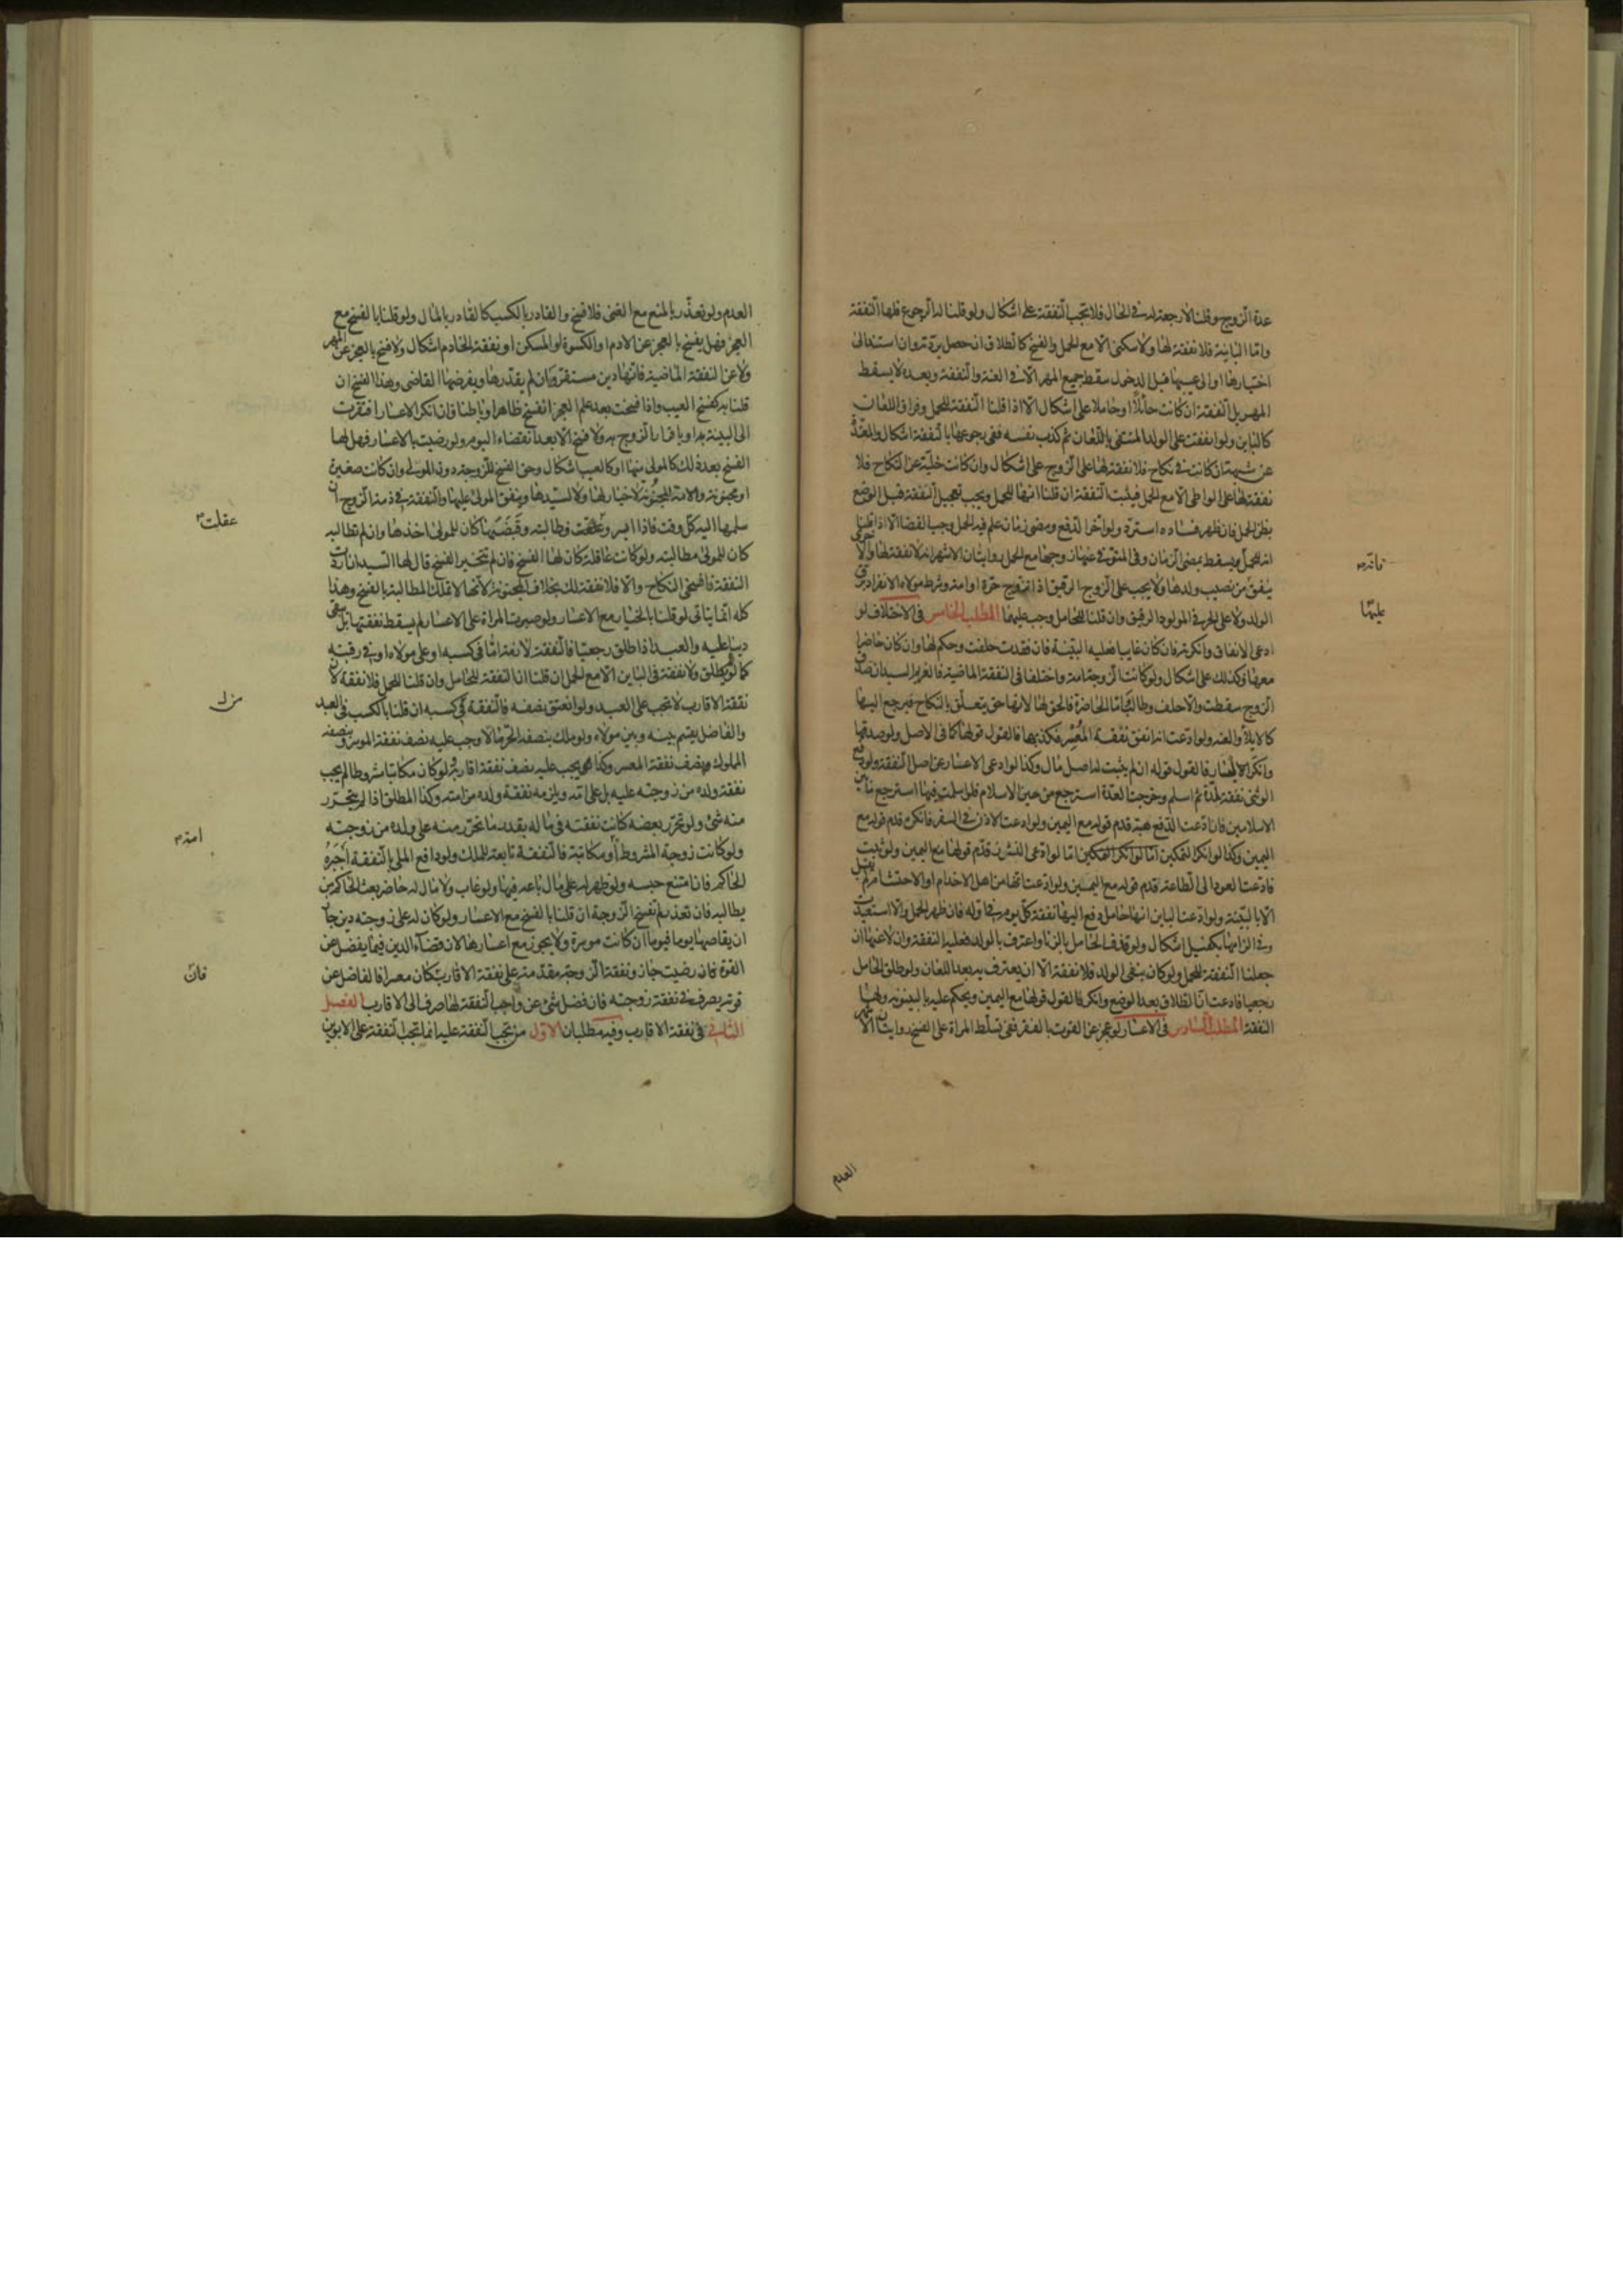 عدة الزوج وقلنا لا رجعة له في الحال فلا تجب النفقة على اشكال ولو قلنا له الرجوع فلها النفقة
واما البائنة فلا نفقة لها ولا سكنى الا مع الحمل والفسخ كالطلاق ان حصل بردته وان استند الى
اختيارها او الى عيبها قبل الدخول سقط جميع المهر الا في العنة والنفقة وبعده لا يسقط
المهر بل النفقة ان كانت حائلا او حاملا على اشكال الا اذا قلنا النفقة للحمل وفراق اللعان
كالباين ولو انفقت على الولد المنتفى باللعان ثم كذب نفسه ففي رجوعها بالنفقة اشكال والمعتدة
عن شبهة ان كانت في نكاح فلا نفقة لها على الزوج على اشكال وان كانت خلية عن النكاح فلا
نفقة لها على الواطي الا مع الحمل فيثبت النفقة ان قلنا انها للحمل ويجب تعجيل النفقة قبل الوضع
بظن الحمل فان ظهر فساده استرده ولو اخر الدفع ومضى زمان علم فيه الحمل وجب القضا الا اذا قلنا
انه للحمل فيسقط بمضى الزمان وفي المتوفى عنها زوجها مع الحمل روايتان الاشهر انه لا نفقة لها والاخرى
ينفق من نصيب ولدها ولا يجب على الزوج الرقيق اذا تزوج حرة او امة وشرط مولاه الانفراد برق
الولد ولا على الحر في المولود الرقيق وان قلنا للحامل وجب عليهما المطلب الخامس في الاختلاف لو
ادعى الانفاق وانكرته فان كان غايبا فعليه البينة فان فقدت حلفت وحكم لها وان كان حاضرا
معها فكذلك على اشكال ولو كانت الزوجة امة واختلفا في النفقة الماضية فالغريم السيد ان صدق
الزوج سقطت والا حلف وطالب اما الحاضرة فالحق لها لانها حق يتعلق بالنكاح فيرجع اليها
كالايلا والعنة ولو ادعت انه انفق نفقة المعسر فكذبها فالقول قولها كما في الاصل ولو صدقها
وانكر الايسار فالقول قوله ان لم يثبت له اصل مال وكذا لو ادعى الاعسار عن اصل النفقة ولو دفع
الوثني نفقة لمدة ثم اسلم وخرجت العدة استرجع من حين الاسلام فلو اسلمت فيها استرجع ما بين
الاسلامين فان ادعت الدفع هبة قدم قوله مع اليمين ولو ادعت الاذن في السفر فانكر قدم قوله مع
اليمين وكذا لو انكر التمكين اما لو انكر التمكين اما لو ادعى النشوز قدم قولها مع اليمين ولو ثبت
فادعت العود الى الطاعة قدم قوله مع اليمين ولو ادعت انها من اهل الاخدام او الاحتشام لم يقبل
الا بالبينة ولو ادعت الباين انها حامل دفع اليها نفقة كل يوم في اوله فان ظهر الحمل والا استعيدت
وفي الزامها بكفيل اشكال ولو قذف الحامل بالزنا واعترف بالولد فعليه النفقة وان لاعنها ان
جعلنا النفقة للحمل ولو كان بنفي الولد فلا نفقة الا ان يعترف به بعد اللعان ولو طلق الحامل
رجعيا فادعت ان الطلاق بعد الوضع وانكر فالقول قولها مع اليمين ويحكم عليه بالبينونة ولها
النفقة المطلب السادس في الاعسار لو عجز عن القوت بالفقر ففي تسلط المراة على الفسخ روايتان اشهرهما
فانه
عليها
العدم
العدم ولو تعذر بالمنع مع الغنى فلا فسخ والقادر بالكسب كالقادر بالمال ولو قلنا بالفسخ مع
العجز فهل يفسخ بالعجز عن الادم او الكسوة او المسكن او نفقة الخادم اشكال ولا فسخ بالعجز عن المهر
ولا عن النفقة الماضية فانها دين مستقر وان لم يقدرها ويفرضها القاضي وهذا الفسخ ان
قلنا به كفسخ العيب واذا فسخت بعد علم العجز انفسخ ظاهرا وباطنا فان انكر الاعسار افتقرت
الى البينة به او باقرار الزوج به ولا فسخ الا بعد انقضاء اليوم ولو رضيت بالاعسار فهل لها
الفسخ بعد ذلك كالمولى منها او كالعيب اشكال وحق الفسخ للزوجة دون المولى وان كانت صغيرة
او مجنونة والامة المجنونة لا خيار لها ولا لسيدها وينفق المولى عليها والنفقة في ذمة الزوج ان
سلمها اليه كل وقت فاذا ايسر وعقلت وطالبته وقبضتها كان للمولى اخذها وان لم تطالبه
كان للمولى مطالبته ولو كانت عاقلة كان لها الفسخ فان لم تتخير الفسخ قال لها السيد ان اردت
النفقة فافسخي النكاح والا فلا نفقة لك بخلاف المجنونة لانها لا تملك المطالبة بالفسخ وهذا
كله انما يتاتى لو قلنا بالخيار مع الاعسار ولو صبرت المراة على الاعسار لم يسقط نفقتها بل تبقى
دينا عليه والعبد اذا طلق رجعيا فالنفقة لازمة اما في كسبه او على مولاه او في رقبته
كما لو لم يطلق ولا نفقة في الباين الا مع الحمل ان قلنا ان النفقة للحامل وان قلنا للحمل فلا نفقة لان
نفقة الاقارب لا تجب على العبد ولو انعتق نصفه فالنفقة في كسبه ان قلنا بالكسب في العبد
والفاضل يقسم بينه وبين مولاه ولو ملك بنصفه الحر مالا وجب عليه نصف نفقة الموسر ونصفه
المملوك نصف نفقة المعسر وكذا يجب عليه نصف نفقة اقاربه ولو كان مكاتبا مشروطا لم يجب
نفقة ولده من زوجته عليه بل على امه ويلزمه نفقة ولده من امته وكذا المطلق اذا لم يتحرر
منه شئ ولو تحرر بعضه كانت نفقته في ماله بقدر ما تحرر منه على ولده من زوجته
ولو كانت زوجة المشروط او مكاتبة فالنفقة تابعة للملك ولو دافع الملي بالنفقة اجبره
الحاكم فان امتنع حبسه ولو ظهر له على مال باعه فيها ولو غاب ولا مال له حاضر بعث الحاكم من
يطالبه فان تعذر لم تفسخ الزوجة ان قلنا بالفسخ مع الاعسار ولو كان له على زوجته دين جاز
ان يقاصها يوما فيوما ان كانت موسرة ولا يجوز مع اعسارها لان قضاء الدين فيما يفضل عن
القوة فان رضيت جاز ونفقة الزوجة مقدمة على نفقة الاقارب كان معسرا فالفاضل عن
قوته يصرف في نفقة زوجته فان فضل شئ عن واجب النفقة لها صرف الى الاقارب الفصل
الثاني في نفقة الاقارب وفيه مطلبان الاول من تجب النفقة عليه انما تجب النفقة على الابوين
عقلت
من ل
امته
فان